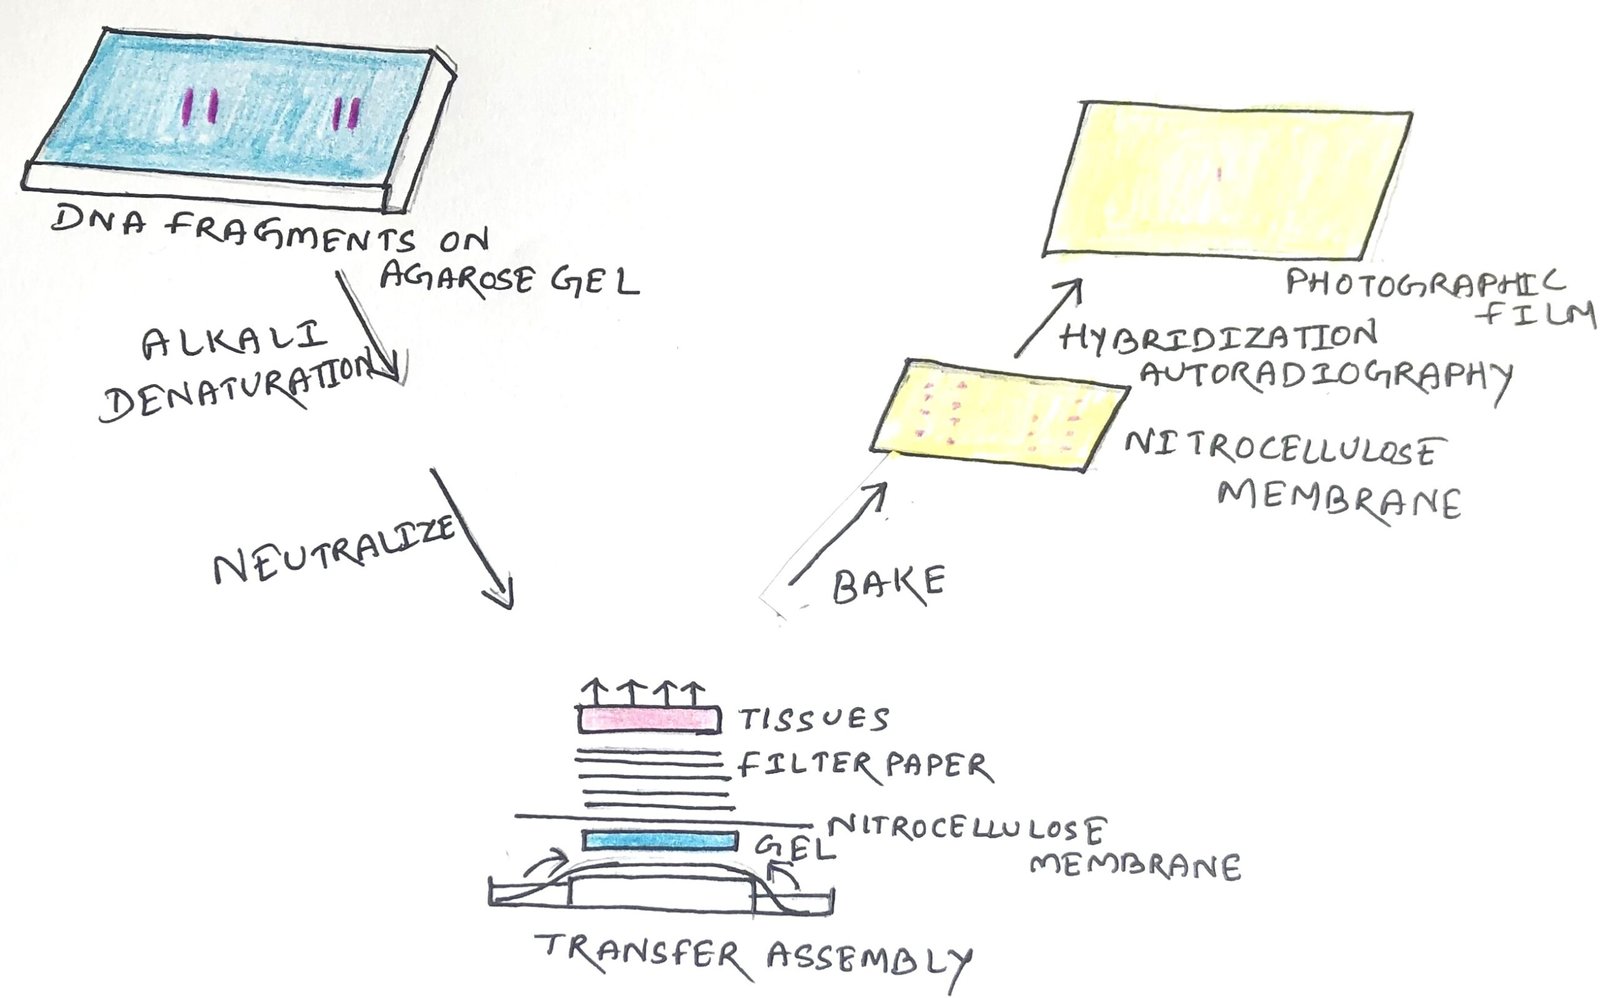 DNA FRAGMENTS ON
AGAROSE GEL
ALKALI
DENATURATION
NEUTRALIZE
TISSUES
FILTER PAPER
NITROCELLULOSE
MEMBRANE
GEL
TRANSFER ASSEMBLY
BAKE
NITROCELLULOSE
MEMBRANE
HYBRIDIZATION
AUTORADIOGRAPHY
PHOTOGRAPHIC
FILM